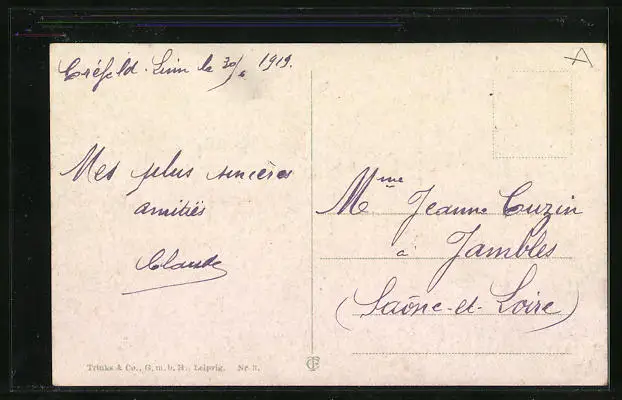 Créfeld-Linn le 30/6 1919.
Mes plus sincères
amitiés
Claude
Mme Jeanne Cuzin
à Jambles
(Saône-et-Loire)
Trinks & Co., G. m. b. H., Leipzig. Nr. 3.